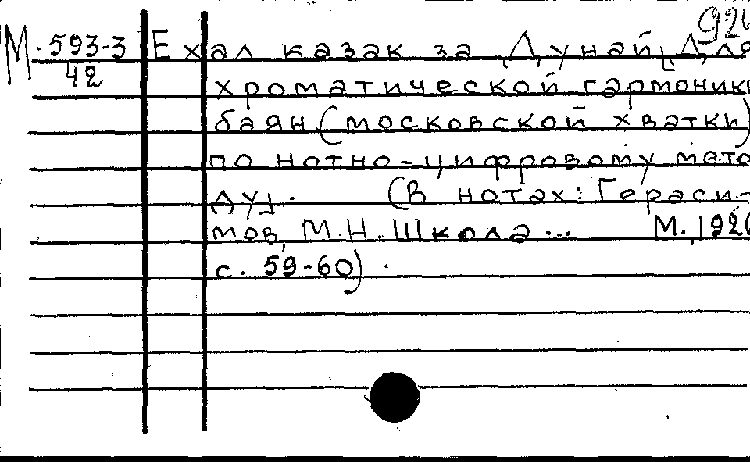 М.593-3
42
Ехал казак за Дунай[Для
хроматической гармоники
баян (московской хватки)
по нотно-цифровому мето
ду]. (В нотах: Гераси-
мов, М.Н. Школа... М.,192
с. 59-60).